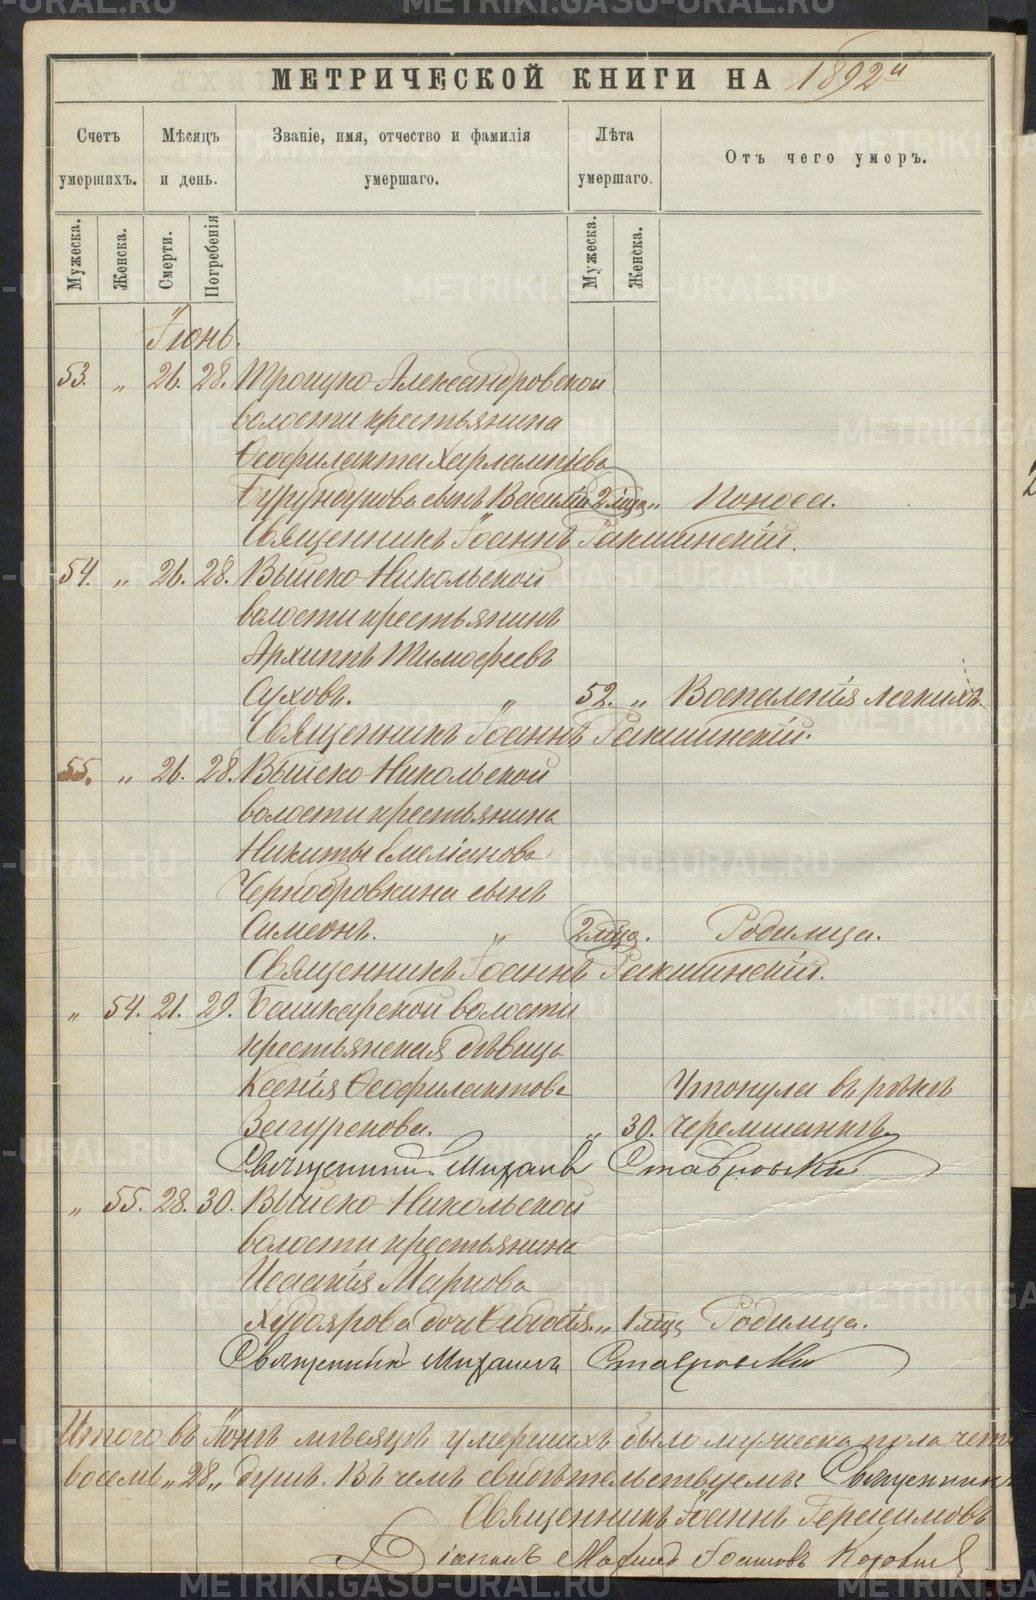 МЕТРИЧЕСКОЙ КНИГИ НА 1892й
Счетъ умершихъ.
Мѣсяцъ и день.
Званіе, имя, отчество и фамилія умершаго.
Лѣта умершаго.
Отъ чего умеръ.
Мужеска.
Женска.
Смерти.
Погребенія
Мужеска.
Женска.
Іюнь.
53. „ 26. 28. Троицко Александровской
волости крестьянина
Ѳеофилакта Харлампіева
Бурундукова сынъ Василій 2 мѣся „ Поноса.
Священникъ Іоаннъ
54. „ 26. 28. Выйско Никольской
волости крестьянинъ
Архиппъ Тимофеевъ
Суховъ. „ 52. „ Воспаленія легкихъ.
Священникъ Іоаннъ
55. „ 26. 28. Выйско Никольской
волости крестьянина
Никиты Емеліанова
Чернобровкина сынъ
Симеонъ. „ 2 мѣся. Родимца.
Священникъ Іоаннъ
„ 54. 21. 29. Башкарской волости
крестьянская дѣвица
Ксенія Ѳеофилактова
Загуренова. „ 30. Утонула въ рѣкѣ
Черемшанкѣ.
Священникъ Михаилъ Ставровскій
„ 55. 28. 30. Выйско Никольской
волости крестьянина
Исаакія Маркова
Худоярова дочь Ѳеодосія. „ 1 мѣся Родимца.
Священникъ Михаилъ Ставровскій
Итого въ Іюнѣ мѣсяцѣ умершихъ было мужеска пола
восемь „28„ душъ. Въ чемъ свидѣтельствуемъ: Священникъ
Священникъ Іоаннъ Герасимовъ
Діаконъ
METRIKI.GASO-URAL.RU